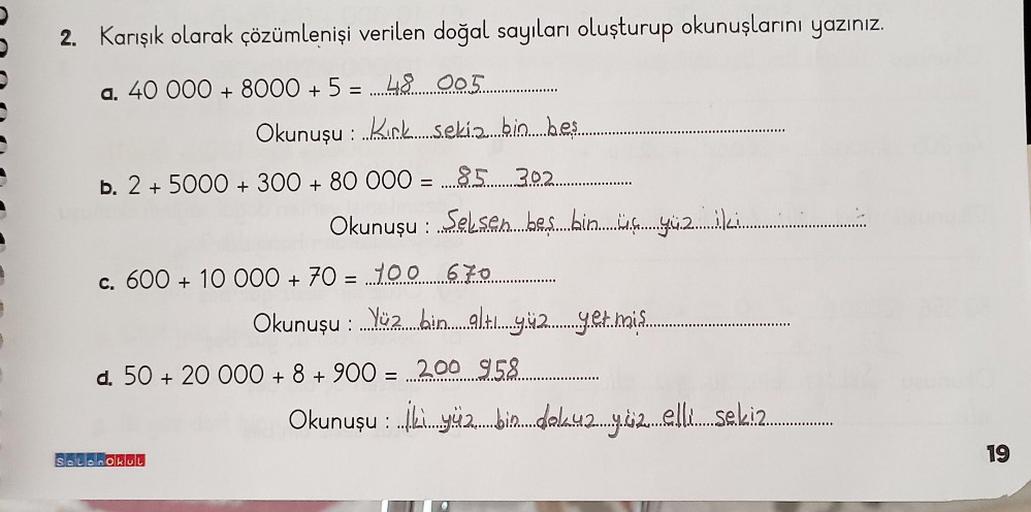 2. Karışık olarak çözümlenişi verilen doğal sayıları oluşturup okunuşlarını yazınız.
a. 40 000 + 8000 + 5 = 48 005
Okunuşu : Kırk sekiz bin beş
b. 2 + 5000 + 300 + 80 000 = 85 302
Okunuşu : Seksen beş bin üç yüz iki
c. 600 + 10 000 + 70 = 100 670
Okunuşu : Yüz bin altı yüz yetmiş
d. 50 + 20 000 + 8 + 900 = 200 958
Okunuşu : İki yüz bin dokuz yüz elli sekiz
SolonOkul
19